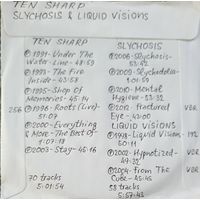 TEN SHARP
SLYCHOSIS & LIQUID VISIONS
TEN SHARP
① 1991-Under The
Water-Line-48:59
② 1993-The Fire
Inside-43:03
③ 1995-Shop Of
Memories-45:14
256 ④ 1996-Roots (Live)-
51:07
⑤ 2000-Everything
& More-The Best of
1-67:18
⑥ 2003-Stay-46:16
70 tracks
5:01:54
SLYCHOSIS
① 2006-Slychosis-
53:42
② 2009-Slychedelia-
② 2010-Mental
Hygiene-53:32
④ 2012-Fractured VBR
Eye & 43:00
LIQUID VISIONS
① 1998-Liquid Visions- 192
50:11
② 2002-Hypnotized- VBR
49:22
③ 2004-From The VBR
Cube-45:45
53 tracks
5:57:42